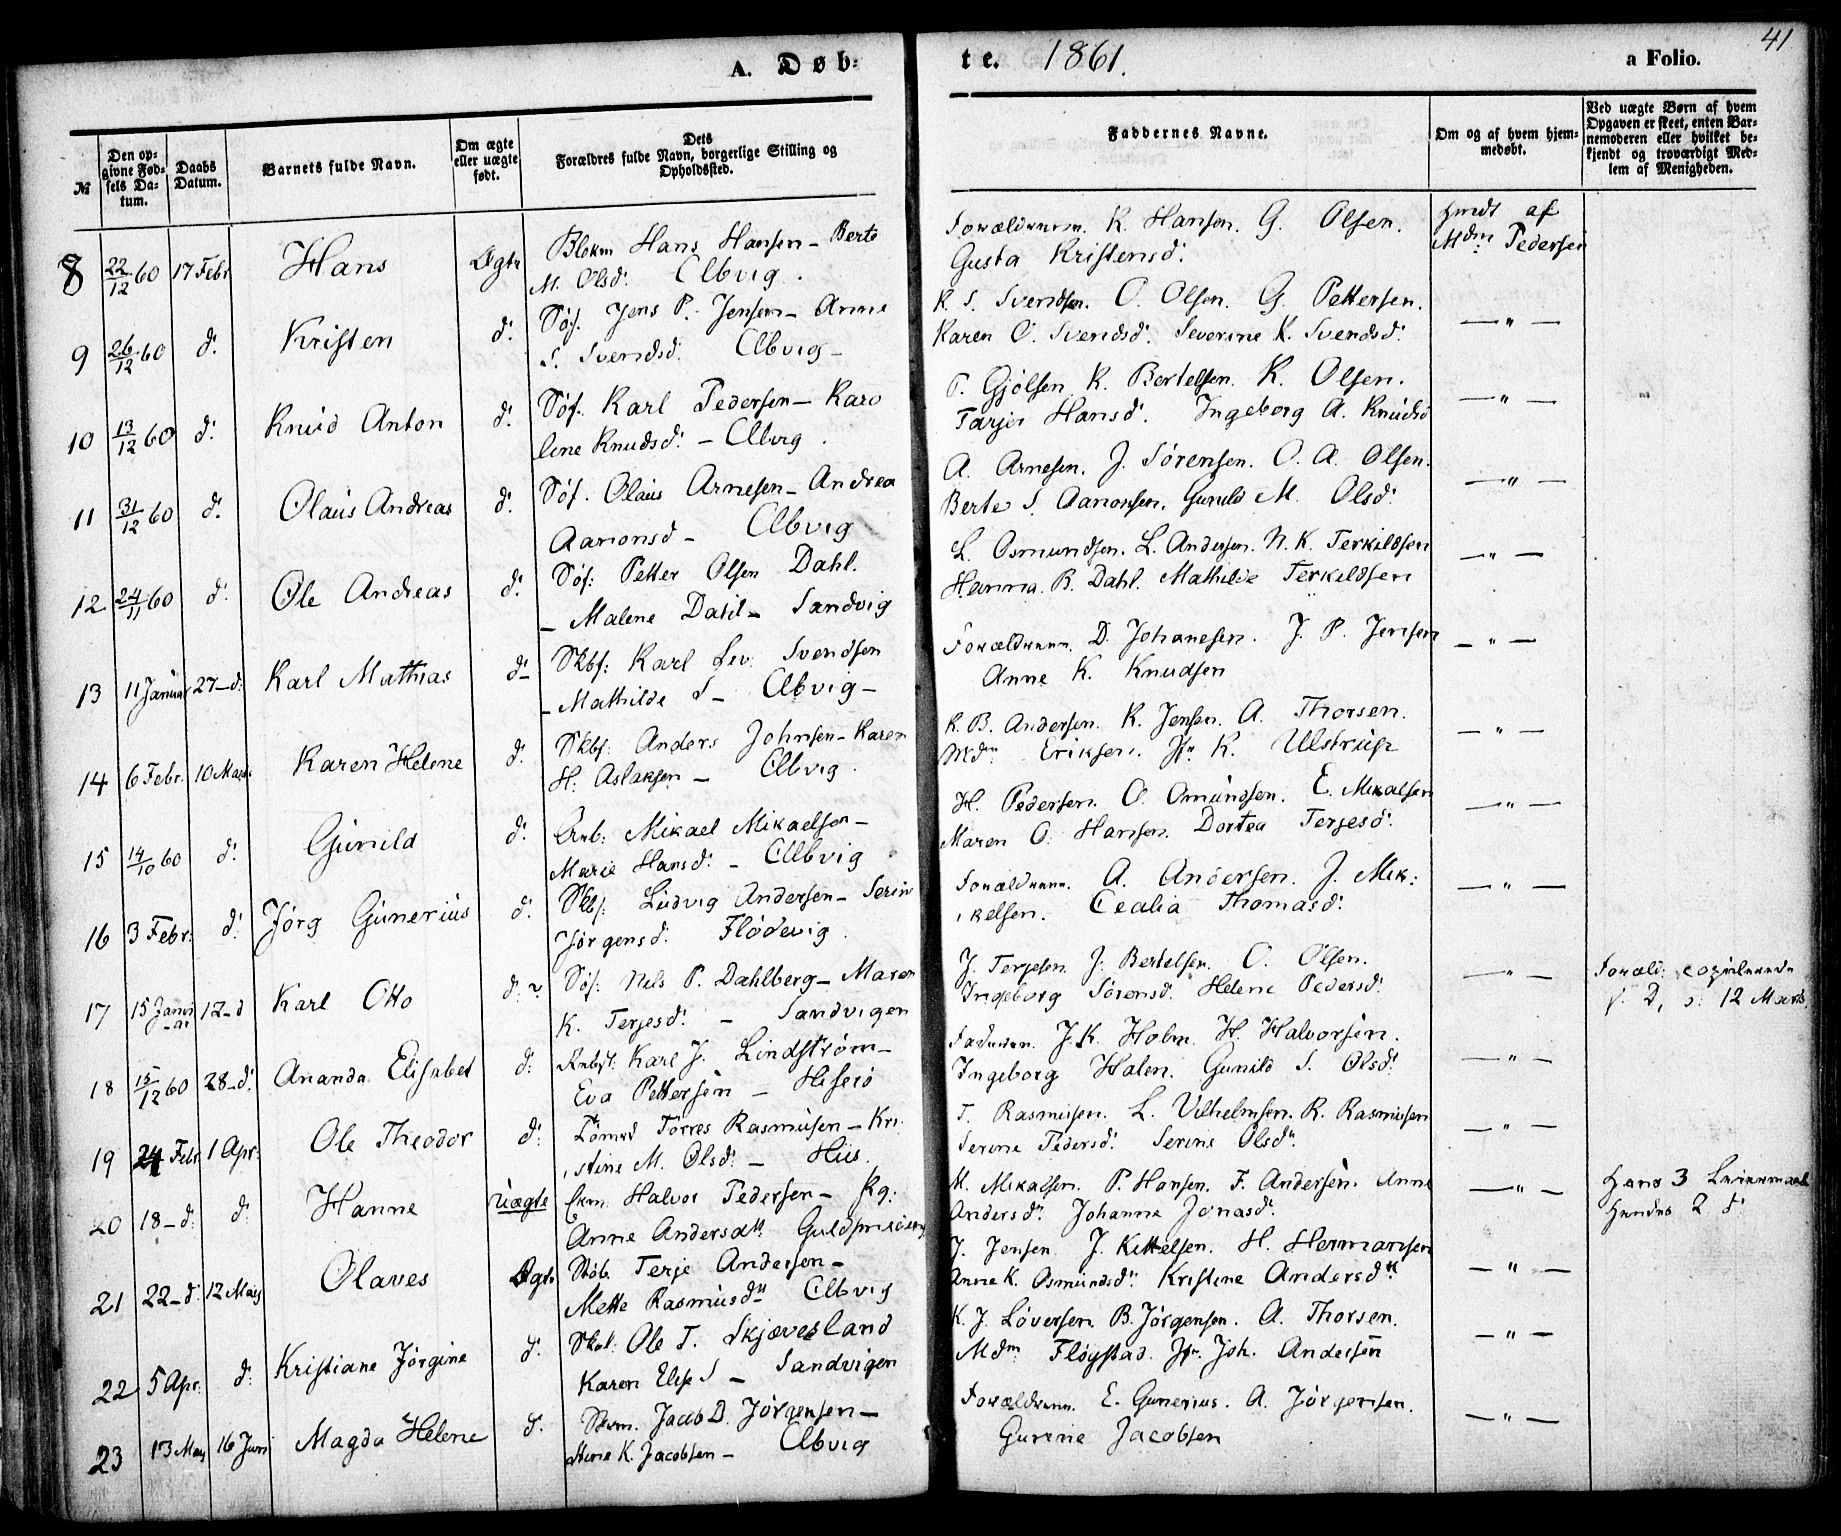 41
A. Døb-
te. 1861.
a Folio.
№
Den op-
givne Fød-
sels Da-
tum.
Daabs
Datum.
Barnets fulde Navn.
Om ægte
eller uægte
født.
Dets
Forældres fulde Navn, borgerlige Stilling og
Opholdssted.
Faddernes Navne.
Om og af hvem hjem-
medøbt.
Ved uægte Børn af hvem
Opgaven er skeet, enten Bar-
nemoderen eller hvilket be-
kjendt og troværdigt Med-
lem af Menigheden.
8 22/12 60 17 Febr Hans Ægte Blokm Hans Hansen - Berte
M. Olsd. Elbvig.
Forældrenen. K. Hansen. G. Olsen.
Gusta Kristensd.
hmdt af
Mdm Pedersen
9 26/12 60 d. Kristen d. Søf. Jens P. Jensen - Anne
S. Svendsd. Elbvig -
K. S. Svendsen. O. Olsen. G. Pettersen.
Karen O. Svendsd. Severine K. Svendsd.
— " —
10 13/12 60 d. Knud Anton d. Søf. Karl Pedersen - Karo
line Knudsd. - Elbvig.
P. Gjølsen. K. Bertelsen. K. Olsen.
Tarjer Hansd. Ingeborg A. Knudsd
— " —
11 31/12 60 d. Olaus Andreas d. Søf. Olaus Arnesen - Andrea
Aanonsd - Elbvig
A. Arnesen. J. Sørensen. O. A. Olsen.
Berte S. Aanonsen. Gunild M. Olsd.
— " —
12 24/11 60 d. Ole Andreas d. Søf. Petter Olsen Dahl.
- Malene Dahl - Sandvig
L. Osmundsen. L. Andersen. N. K. Terkildsen
Hanna B. Dahl. Mathilde Terkildsen
— " —
13 11 Januar 27 - d. Karl Mathias d - Skbf. Karl Lev. Svendsen
- Mathilde S - Elbvig -
Forældrenen. D. Johanesen. J. P. Jensen
Anne K. Knudsen
— " —
14 6 Febr. 10 Mars Karen Helene d. Skbf. Anders Johnsen - Karen
H. Aslaksen - Elbvig.
K. B. Andersen. K. Jensen. A. Thorsen.
Mdm Eriksen. Jfr K. Ulstrup
— " —
15 14/10 60 d. Gunild d. Arb. Mikael Mikaelsen -
Marie Hansd. - Elbvig
H. Pedersen. O. Omundsen. E. Mikalsen
Maren O. Hansen. Dortea Terjesd.
— " —
16 3 Febr. d. Jørg Gunerius d. Skbf. Ludvig Andersen - Serine
Jørgensd. Flødevig.
Forældrenen. A. Andersen. J. Mik-
kelsen. Cecalia Thomasd.
— " —
17 15 Janu
ar 12 - d Karl Otto d. Søf. Nils P. Dahlberg - Maren
K. Terjesd. - Sandvigen
J. Terjesen. J. Bertelsen. O. Olsen.
Ingeborg Sørensd. Helene Pedersd.
— " —
Foræld. copulerede
12 Marts
18 15/12 60 28 - d. Ananda Elisabet d. Arbsf. Karl J. Lindstrøm -
Eva Pettersen - Hiserø
Faderen J. K. Holm. H. Halvorsen.
Ingeborg Halen. Gunild S. Olsd.
— " —
19 24 Febr 1 Apr. Ole Theodor d. Tømrd Torres Rasmusen - Kri-
stine M. Olsd. - Hiis.
T. Rasmusen. L. Vilhelmsen. R. Rasmusen
Serine Pedersd. Serine Olsdtr
— " —
20 18 - d. d. Hanne Uægte Ekm. Halvor Pedersen - Pg.
Anne Andersdtr Guldsmedeng
M. Mikalsen. P. Hansen. F. Andersen. Anne
Andersdtr Johanne Jonasd.
— " —
Hans 3 Leiermaal
Hendes 2 d
21 22 - d. 12 Maj Olaves Ægte Støb. Terje Andersen -
Mette Rasmusdtr Elbvig
J. Jensen J. Kittelsen. H. Hermansen
Anne K. Osmundsdtr Kristine Andersdtr
— " —
22 5 Apr. d. Kristiane Jørgine d. Skol. Ole T. Skjævesland
Karen Elise S - Sandvigen
K. J. Løversen. B. Jørgensen. A. Thorsen.
Mdm Fløystad. Jfr. Joh. Andersen
— " —
23 13 Maj 16 Juni Magda Helene d. Jacob D. Jørgensen -
K. Jacobsen - Elbvig
Forældrenen. E. Gunerius. A. Jørgensen.
Gurine Jacobsen
— " —